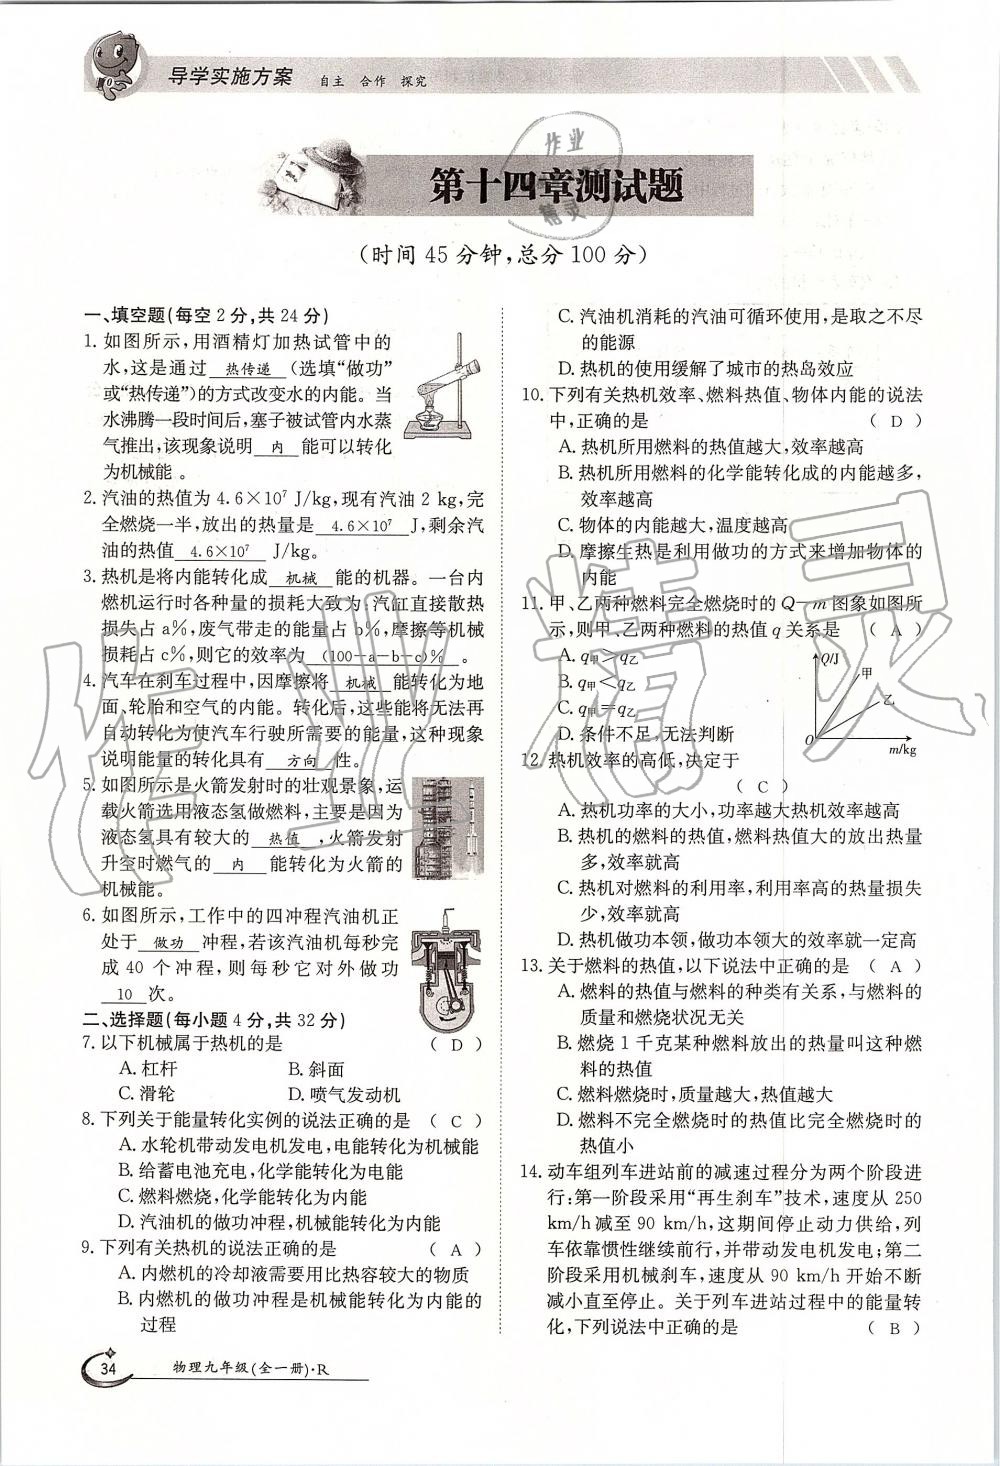 导学实施方案 自主 合作 探究
第十四章测试题
(时间 45 分钟,总分 100 分)
一、填空题(每空 2 分,共 24 分)
1. 如图所示,用酒精灯加热试管中的
水,这是通过 热传递 (选填“做功”
或“热传递”)的方式改变水的内能。当
水沸腾一段时间后,塞子被试管内水蒸
气推出,该现象说明 内 能可以转化
为机械能。
2. 汽油的热值为 4.6×10⁷ J/kg,现有汽油 2 kg,完
全燃烧一半,放出的热量是 4.6×10⁷ J,剩余汽
油的热值 4.6×10⁷ J/kg。
3. 热机是将内能转化成 机械 能的机器。一台内
燃机运行时各种量的损耗大致为:汽缸直接散热
损失占 a%,废气带走的能量占 b%,摩擦等机械
损耗占 c%,则它的效率为 (100-a-b-c)% 。
4. 汽车在刹车过程中,因摩擦将 机械 能转化为地
面、轮胎和空气的内能。转化后,这些能将无法再
自动转化为使汽车行驶所需要的能量,这种现象
说明能量的转化具有 方向 性。
5. 如图所示是火箭发射时的壮观景象,运
载火箭选用液态氢做燃料,主要是因为
液态氢具有较大的 热值 ,火箭发射
升空时燃气的 内 能转化为火箭的
机械能。
6. 如图所示,工作中的四冲程汽油机正
处于 做功 冲程,若该汽油机每秒完
成 40 个冲程,则每秒它对外做功
10 次。
二、选择题(每小题 4 分,共 32 分)
7. 以下机械属于热机的是 ( D )
A. 杠杆 B. 斜面
C. 滑轮 D. 喷气发动机
8. 下列关于能量转化实例的说法正确的是 ( C )
A. 水轮机带动发电机发电,电能转化为机械能
B. 给蓄电池充电,化学能转化为电能
C. 燃料燃烧,化学能转化为内能
D. 汽油机的做功冲程,机械能转化为内能
9. 下列有关热机的说法正确的是 ( A )
A. 内燃机的冷却液需要用比热容较大的物质
B. 内燃机的做功冲程是机械能转化为内能的
过程
C. 汽油机消耗的汽油可循环使用,是取之不尽
的能源
D. 热机的使用缓解了城市的热岛效应
10. 下列有关热机效率、燃料热值、物体内能的说法
中,正确的是 ( D )
A. 热机所用燃料的热值越大,效率越高
B. 热机所用燃料的化学能转化成的内能越多,
效率越高
C. 物体的内能越大,温度越高
D. 摩擦生热是利用做功的方式来增加物体的
内能
11. 甲、乙两种燃料完全燃烧时的 Q—m 图象如图所
示,则甲、乙两种燃料的热值 q 关系是 ( A )
A. q甲>q乙
B. q甲<q乙
C. q甲=q乙
D. 条件不足,无法判断
Q/J 甲 乙 O m/kg
12. 热机效率的高低,决定于
( C )
A. 热机功率的大小,功率越大热机效率越高
B. 热机的燃料的热值,燃料热值大的放出热量
多,效率就高
C. 热机对燃料的利用率,利用率高的热量损失
少,效率就高
D. 热机做功本领,做功本领大的效率就一定高
13. 关于燃料的热值,以下说法中正确的是 ( A )
A. 燃料的热值与燃料的种类有关系,与燃料的
质量和燃烧状况无关
B. 燃烧 1 千克某种燃料放出的热量叫这种燃
料的热值
C. 燃料燃烧时,质量越大,热值越大
D. 燃料不完全燃烧时的热值比完全燃烧时的
热值小
14. 动车组列车进站前的减速过程分为两个阶段进
行:第一阶段采用“再生刹车”技术,速度从 250
km/h减至 90 km/h,这期间停止动力供给,列
车依靠惯性继续前行,并带动发电机发电;第二
阶段采用机械刹车,速度从 90 km/h 开始不断
减小直至停止。关于列车进站过程中的能量转
化,下列说法中正确的是 ( B )
34 物理九年级(全一册)·R
作业精灵
作业
精灵